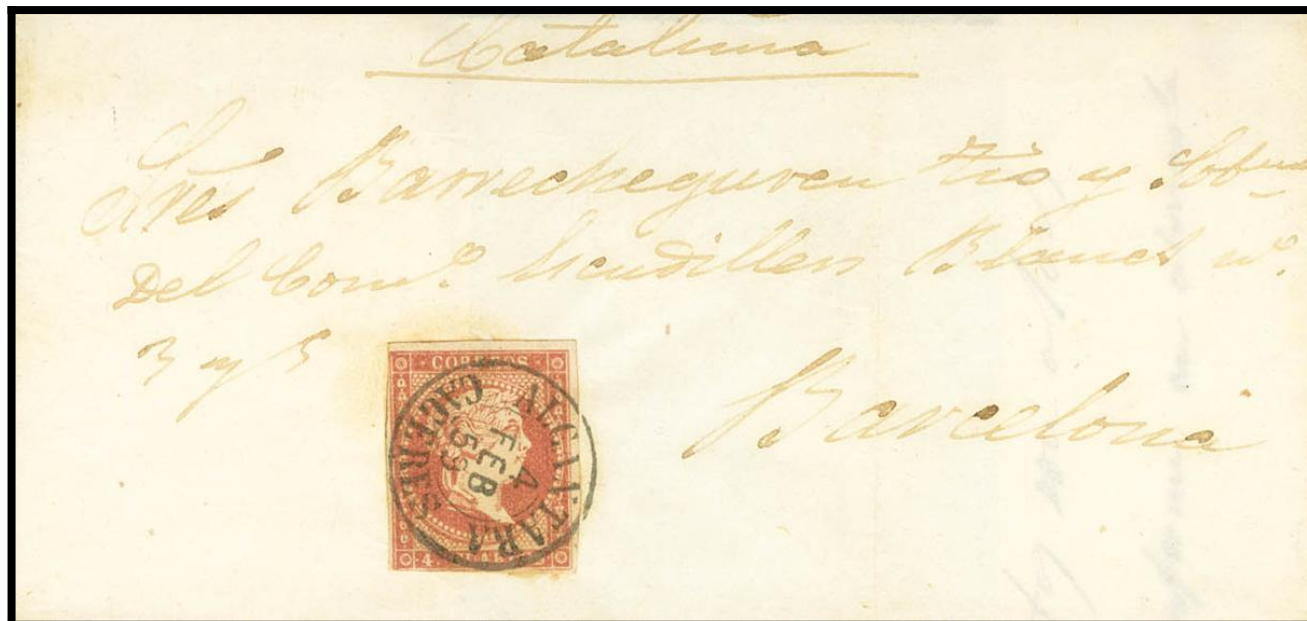 Cataluña
Sres Barrecheguren tio y Sobnos
Del Como. Escudillers Blanchs no.
3 y 5
Barcelona
CORREOS
ALCANTARA
4
FEB
59
CACERES
4